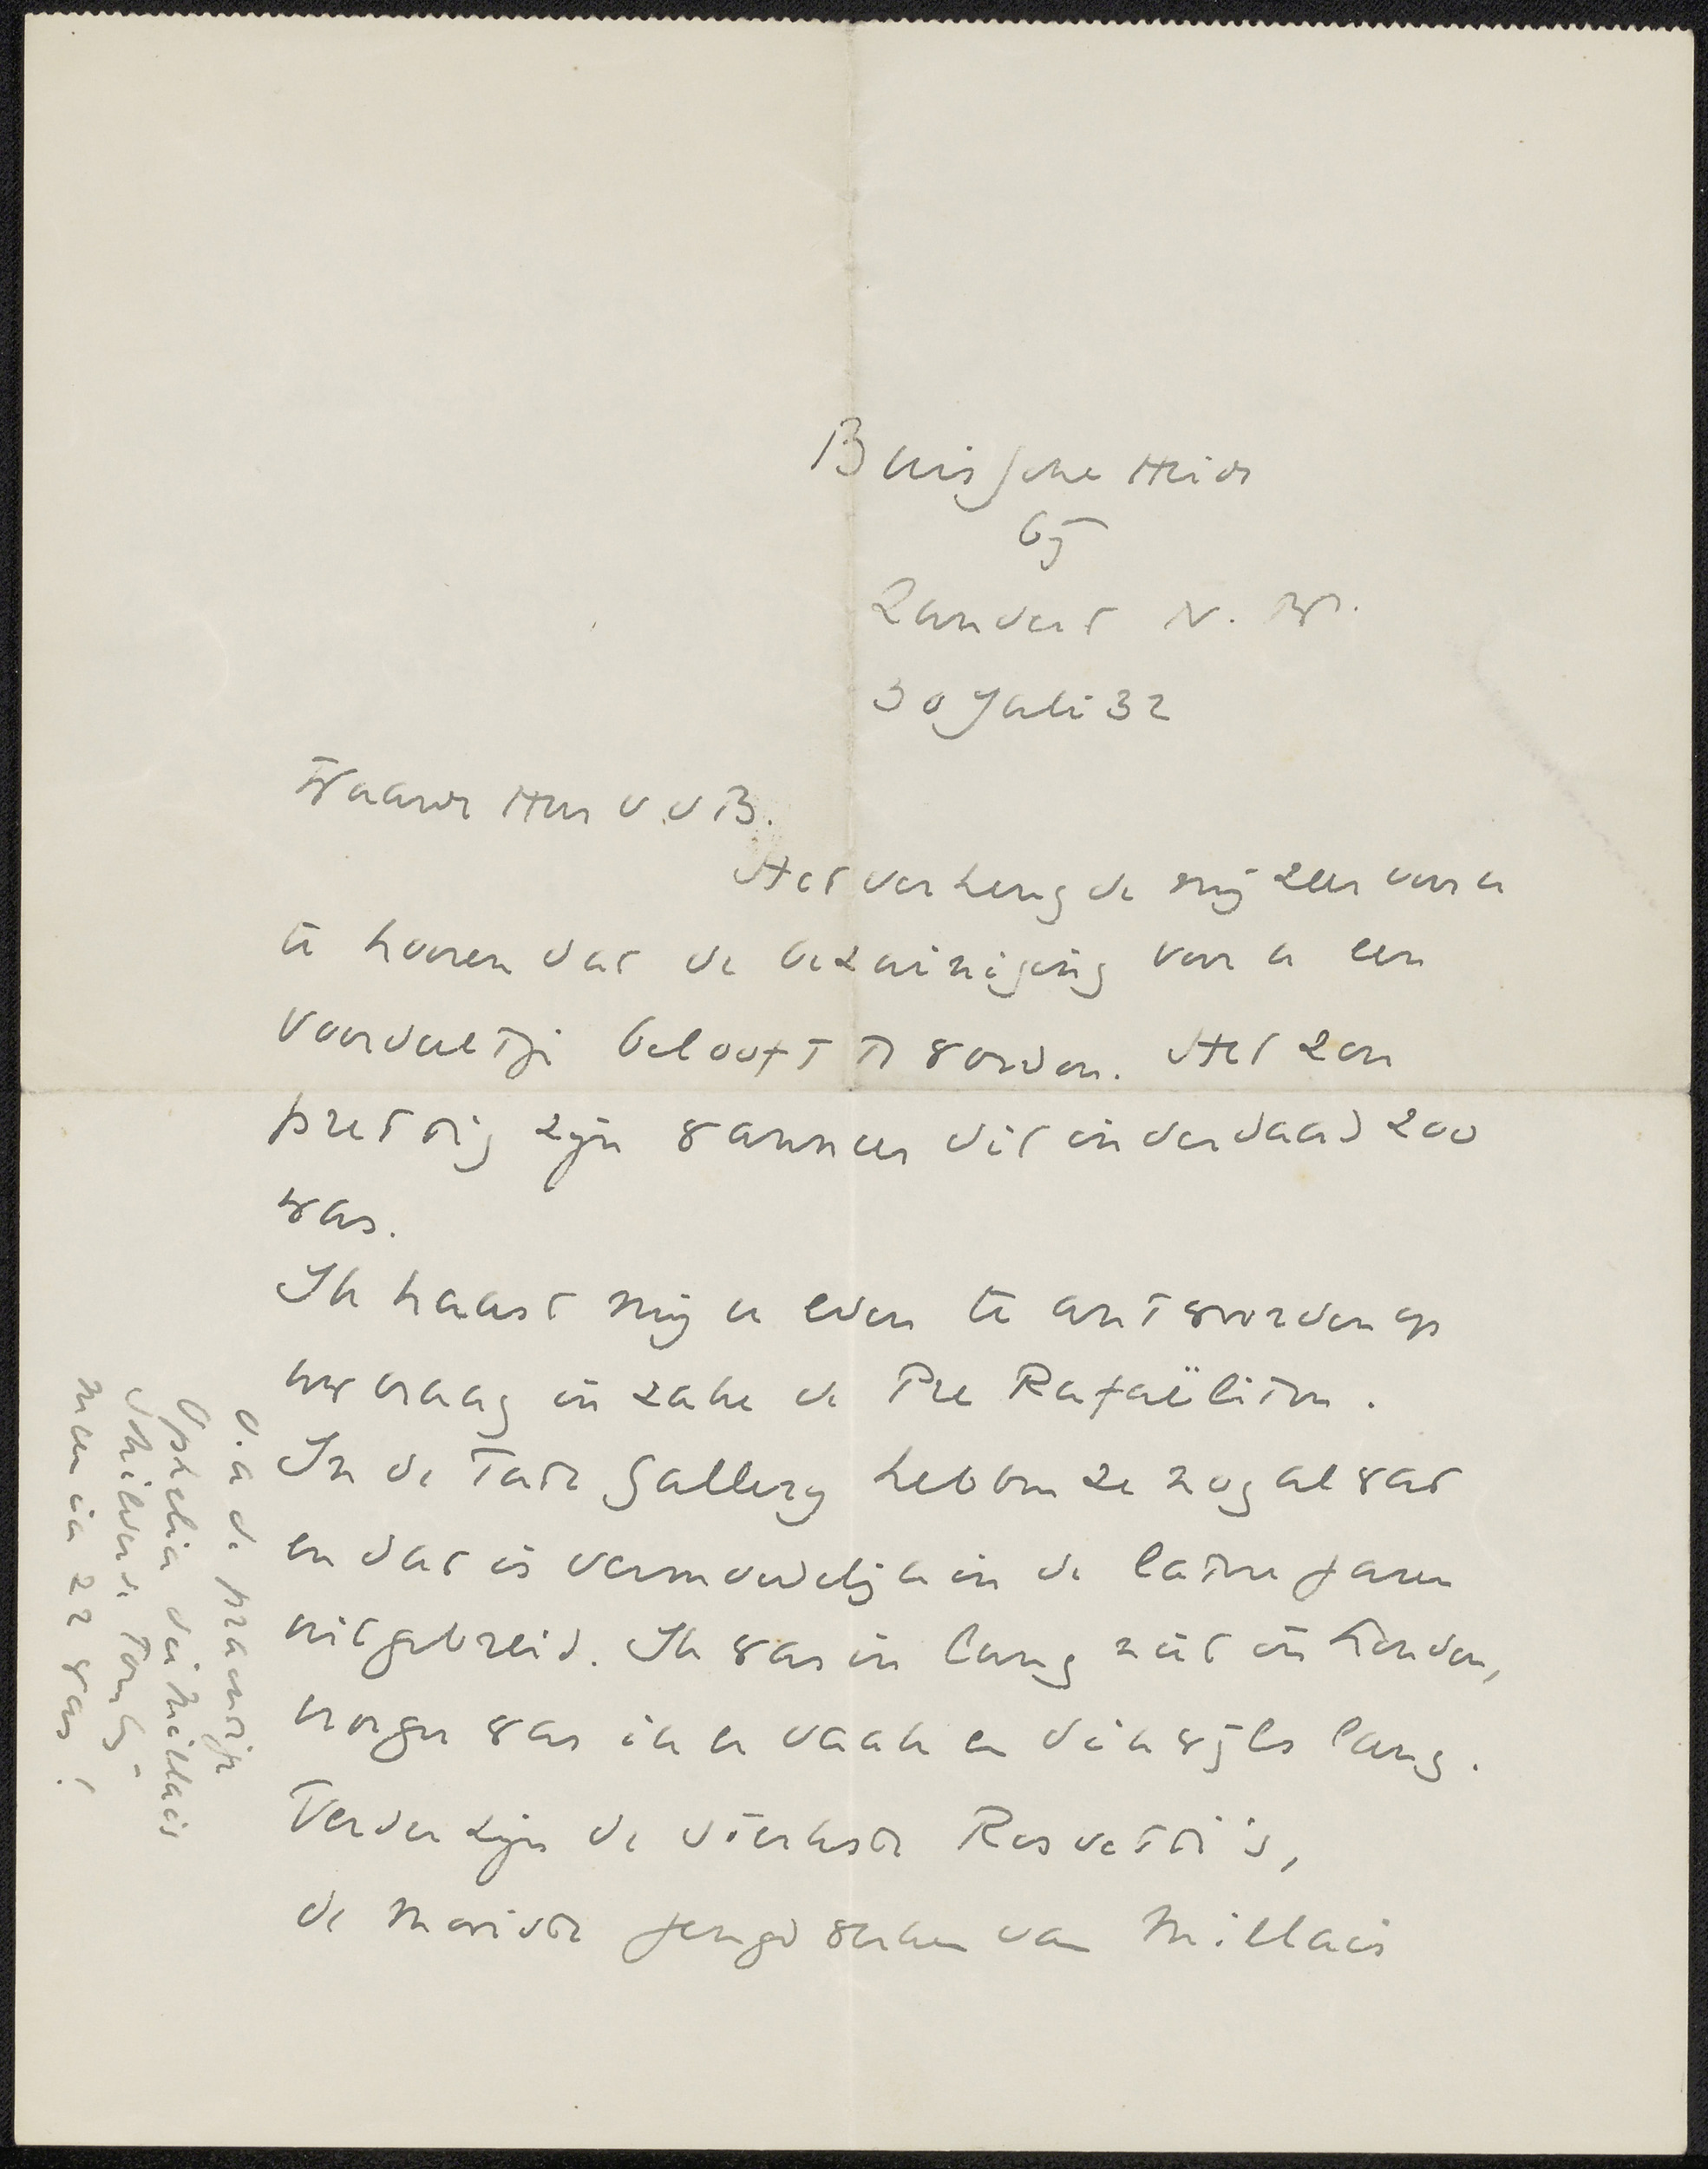 Buissche Heide
bij
Zundert N. Br.
30 Juli 32
Waarde Heer v. d B.
Het verheugde mij zeer van u
te hooren dat de bezuiniging voor u een
voordeeltje belooft te worden. Het zou
prettig zijn wanneer dit inderdaad zoo
was.
Ik haast mij u even te antwoorden op
uw vraag in zake de Pre Rafaëliten.
In de Tate Gallery hebben ze nog al wat
en dat is vermoedelijk in de latere jaren
uitgebreid. Ik was in lang niet in Londen,
vroeger was ik er vaak en dikwijls lang.
Verder zijn de sterkste Rossetti's,
de mooiste jeugdwerken van Millais
o.a de prachtige
Ophelia die Millais
schilderde toen hij
maar 22 was!